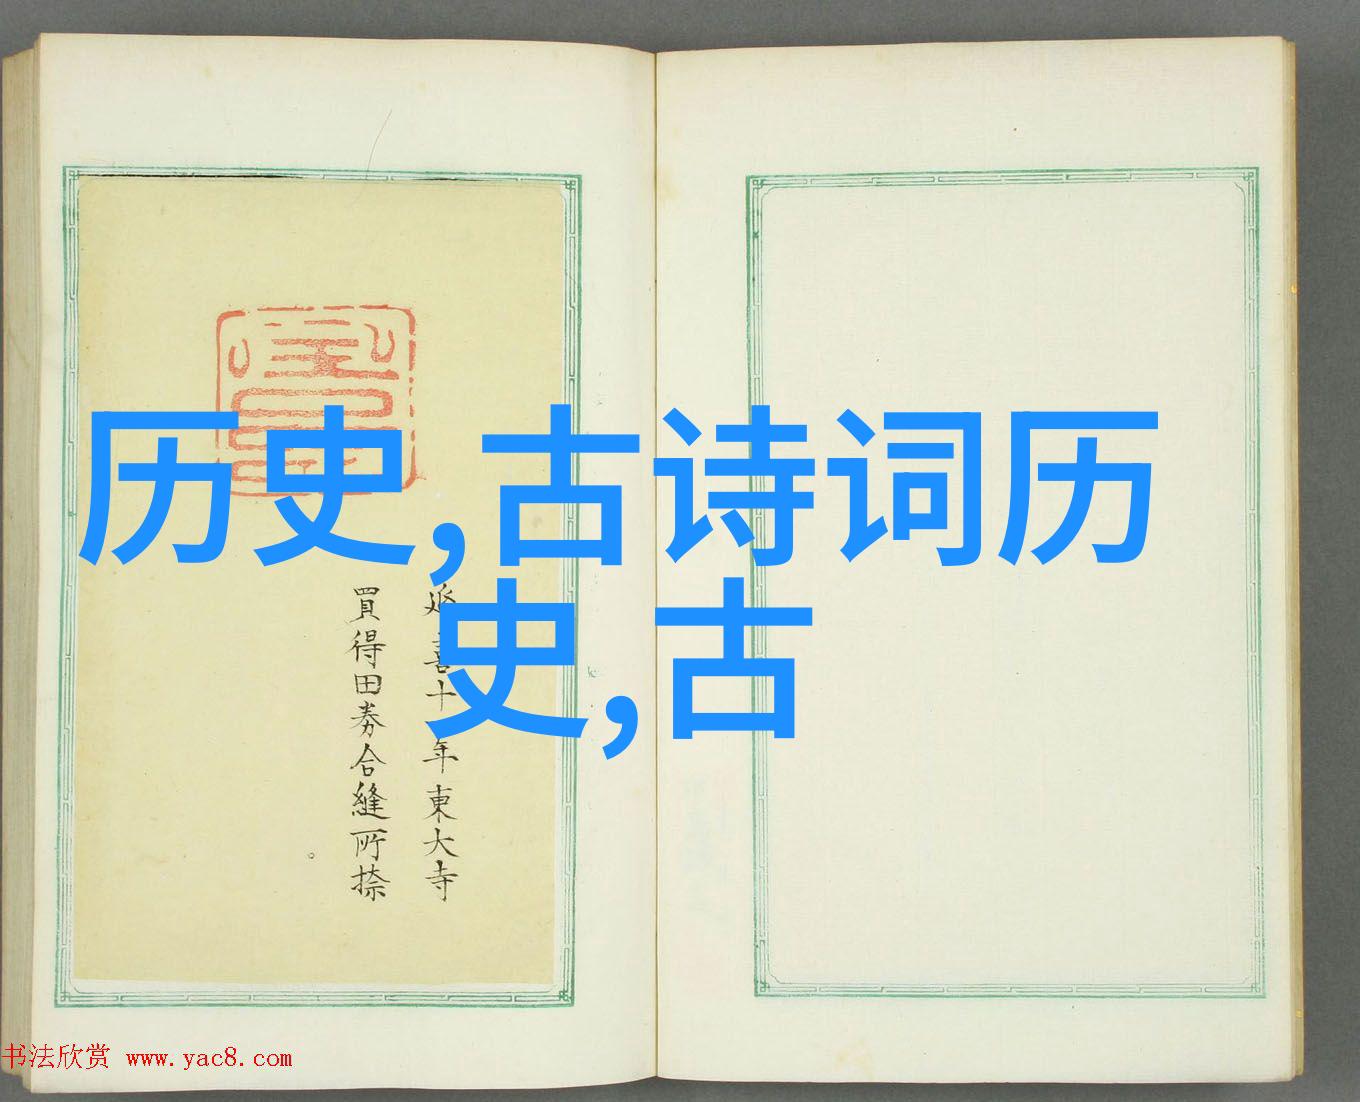 历史,古诗词历
史,古
延喜十年東大寺
買得田券合縫所捺
书法欣赏 www.yac8.com